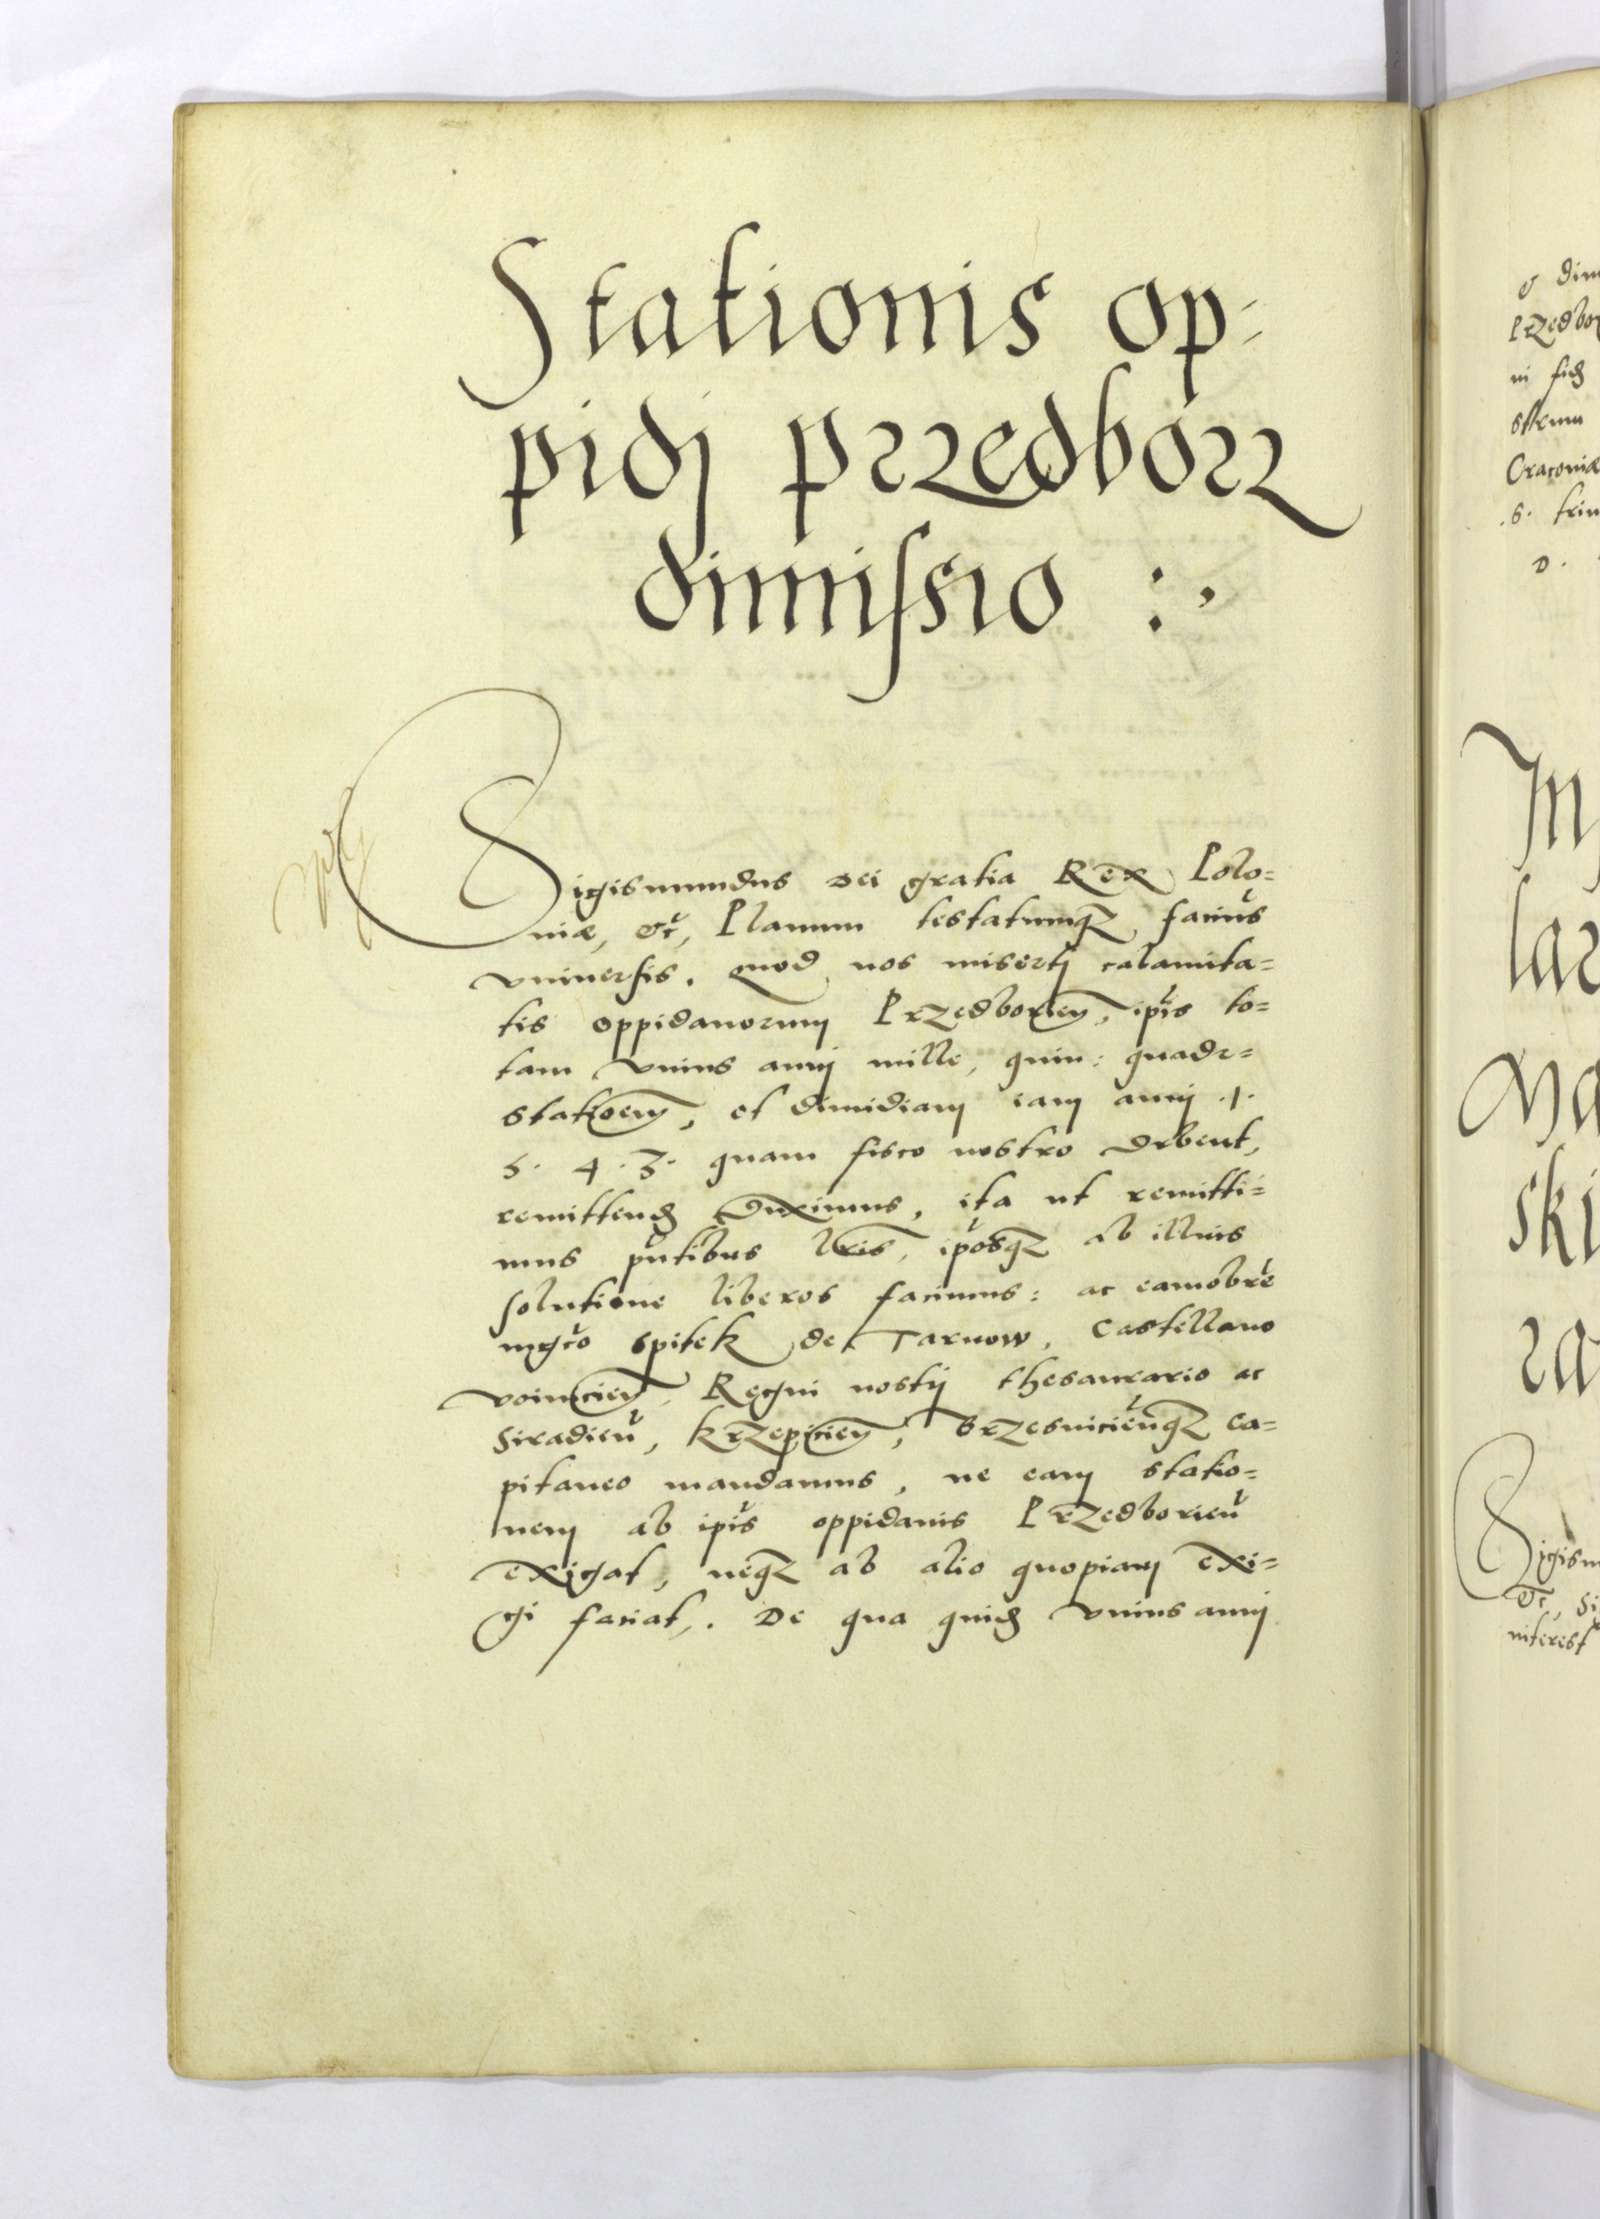 Stationis op-
pidj Przedborz
dimissio :,
Sigismundus Dei gratia Rex Polo=
niæ, &c, Planum testatumq3 facim9
vniuersis. quod nos misertj calamita=
tis oppidanorum Przedborień, ipis to=
tam vnius annj mille, quin: quadr=
stationem, et dimidiam iam annj .1.
5. 4. 3. quam fisco nostro debent,
remittend duximus, ita ut remitti=
mus pñtibus lris, iposq3 ab illius
solutione liberos facimus: ac eamobre
mgco Spitek de Tarnow, Castellano
Voinicień, Regni nostrj thesaurario ac
Siradień, Krzepicień, Brzesnicieńq3 Ca=
pitaneo mandamus, ne eam statio=
nem ab ipis oppidanis Przedborień
exigat, neq3 ab alio quopiam exi=
gi faciat,. De qua quid vnius annj
& dim
Przedbor
ni fid
strum
Craconiæ
.5. trin
D.
In
lar
Ma
ski
ra
Sigism
&c, Si
interest